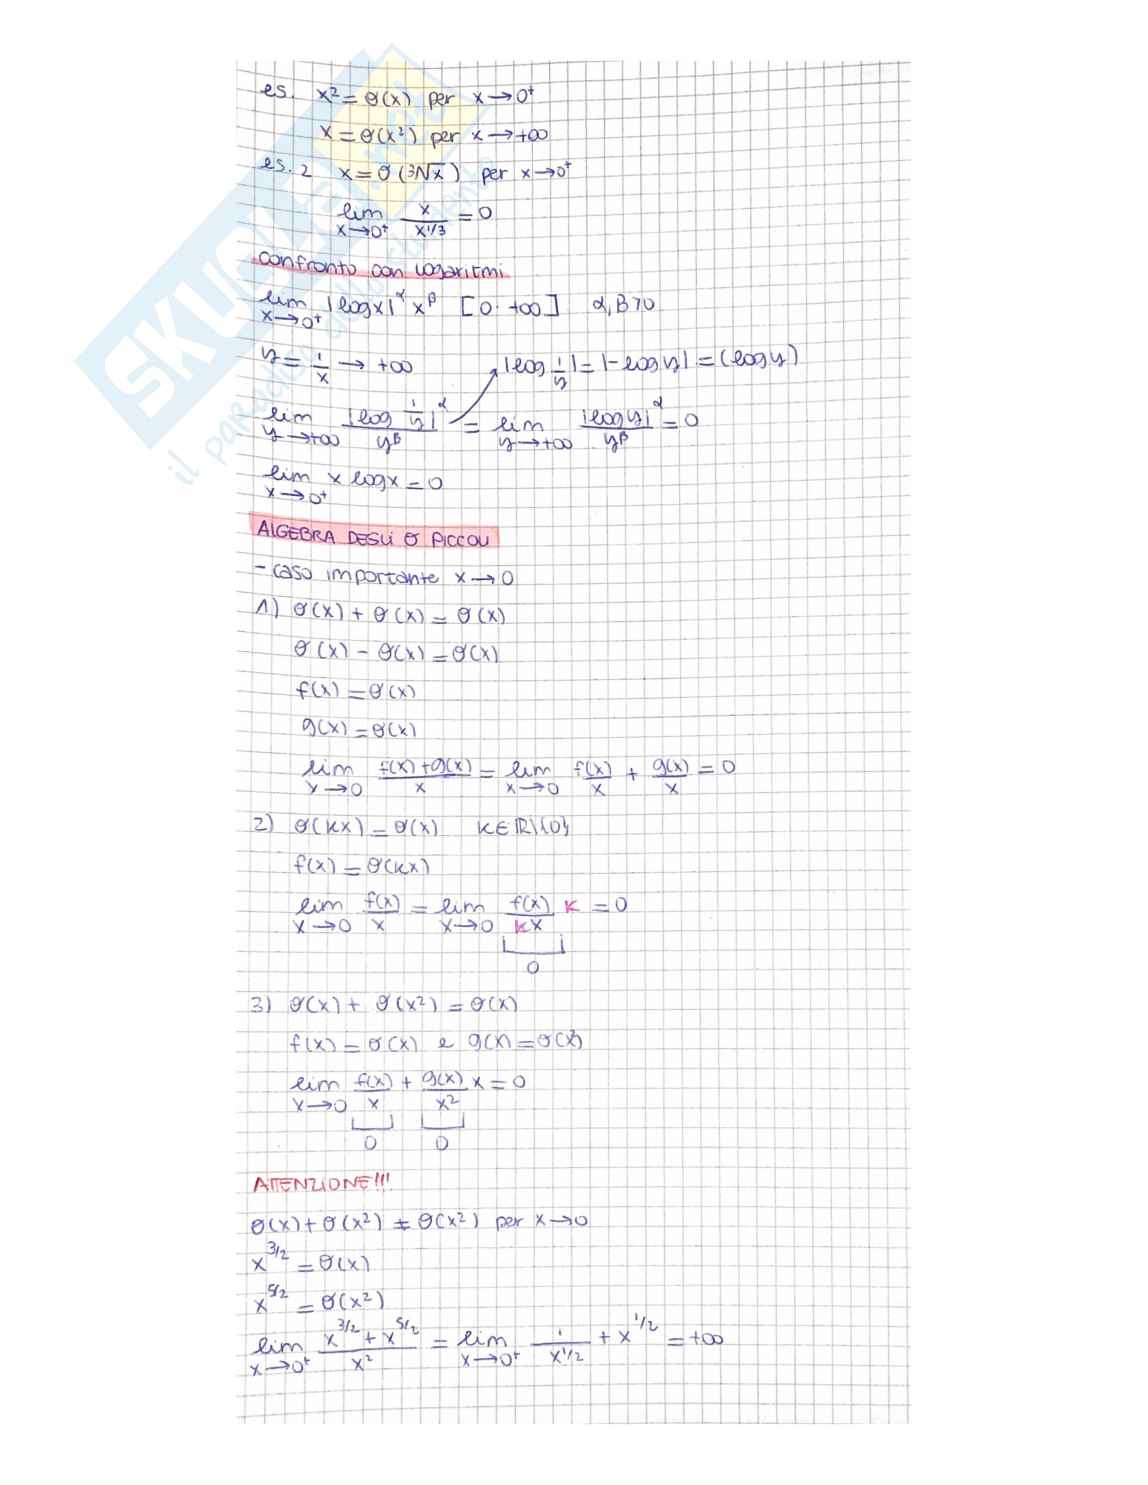 es. x² = o(x) per x → 0⁺
x = o(x²) per x → +∞
es. 2 x = o(³√x) per x → 0⁺
lim x→0⁺ x / x^1/3 = 0
confronto con logaritmi
lim x→0⁺ |logx|^α x^β [0· +∞] α,β>0
y = 1/x → +∞ |log 1/y| = |-logy| = (logy)
lim y→+∞ |log 1/y|^α / y^β = lim y→+∞ |logy|^α / y^β = 0
lim x→0⁺ x logx = 0
ALGEBRA DEGLI o PICCOLI
- caso importante x → 0
1) o(x) + o(x) = o(x)
o(x) - o(x) = o(x)
f(x) = o(x)
g(x) = o(x)
lim x→0 f(x)+g(x) / x = lim x→0 f(x)/x + g(x)/x = 0
2) o(kx) = o(x) K∈ℝ\{0}
f(x) = o(kx)
lim x→0 f(x)/x = lim x→0 f(x)/kx k = 0
0
3) o(x) + o(x²) = o(x)
f(x) = o(x) e g(x) = o(x²)
lim x→0 f(x)/x + g(x)/x² x = 0
0 0
ATTENZIONE!!!
o(x) + o(x²) ≠ o(x²) per x → 0
x^3/2 = o(x)
x^5/2 = o(x²)
lim x→0⁺ x^3/2 + x^5/2 / x² = lim x→0⁺ 1/x^1/2 + x^1/2 = +∞